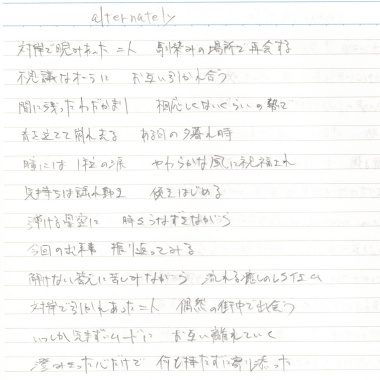 alternately
対岸で睨みあった二人 馴染みの場所で再会する
不思議なオーラに お互い引かれ合う
間に残ったわだかまり 相応しくないぐらいの
音を立てて崩れ去る ある日の夕暮れ時
瞳には1粒の涙 やわらかな風に祝福され
気持ちは揺れ動き 使をはじめる
弾ける星空に 時をうなずきながら
今回の出来事 振り返ってみる
解けない答えに苦しみながら 流れる癒しのレイエム
対岸で引かれあった二人 偶然の街中で出会う
いつしか気まずいムードに お互い離れていく
澄みきった心だけで 何も持たずに寄り添った